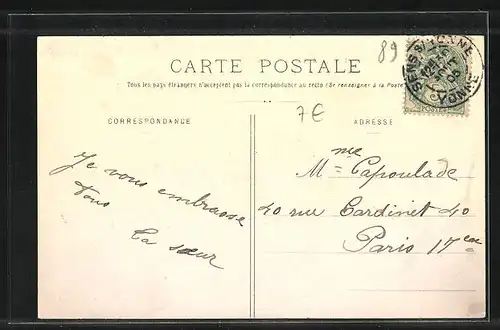 89
CARTE POSTALE
Tous les pays étrangers n'acceptent pas la correspondance au recto (Se renseigner à la Poste
7€
CORRESPONDANCE
ADRESSE
Je vous embrasse
tous
Ta sœur
Mme Capoulade
40 rue Cardinet 40
Paris 17e
SENS S/YONNE
YONNE